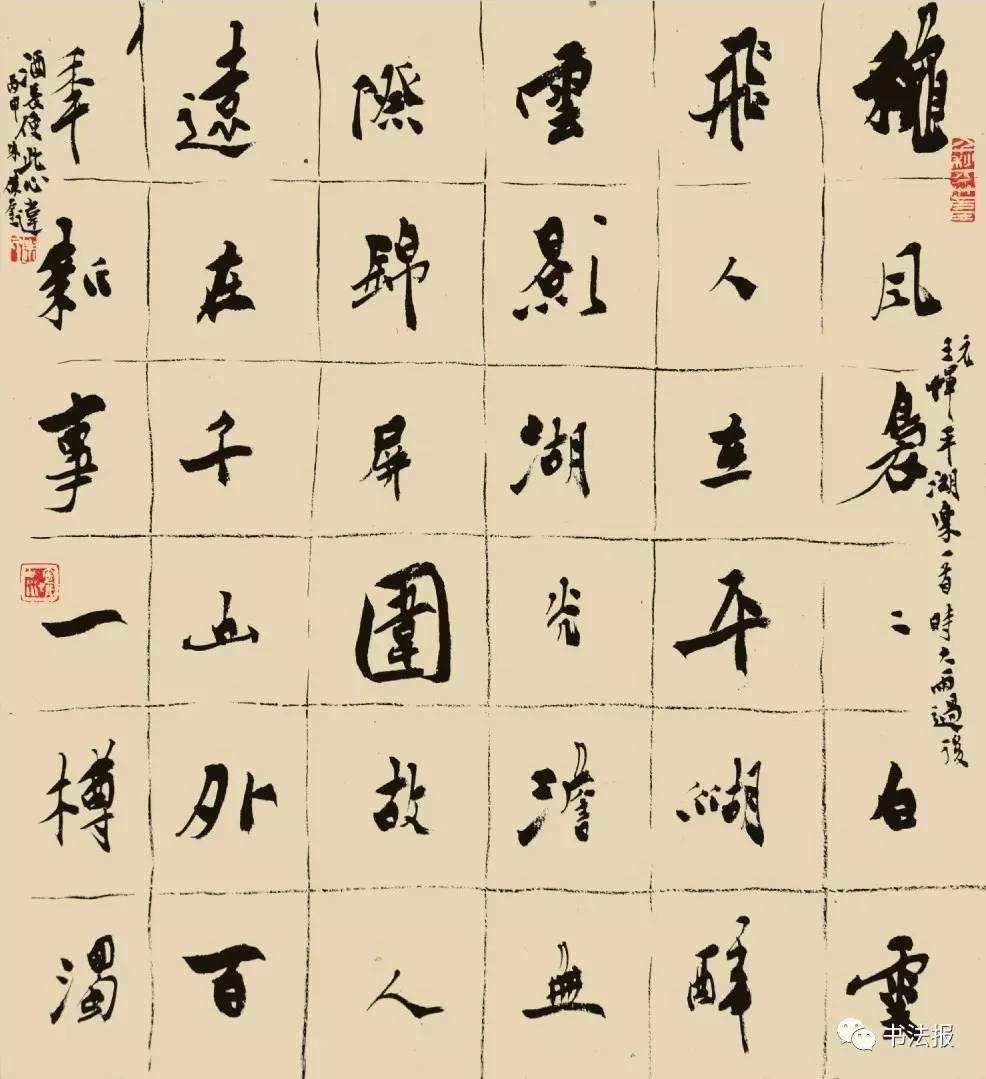 龝風裊二白雲
飛人立平湖醉
雲影湖光澹無
際錦屏圍故人
遠在千山外百
年新事一樽濁
酒長使此心違
丙申
元
王惲平湖樂一首時大雨過後
书法报